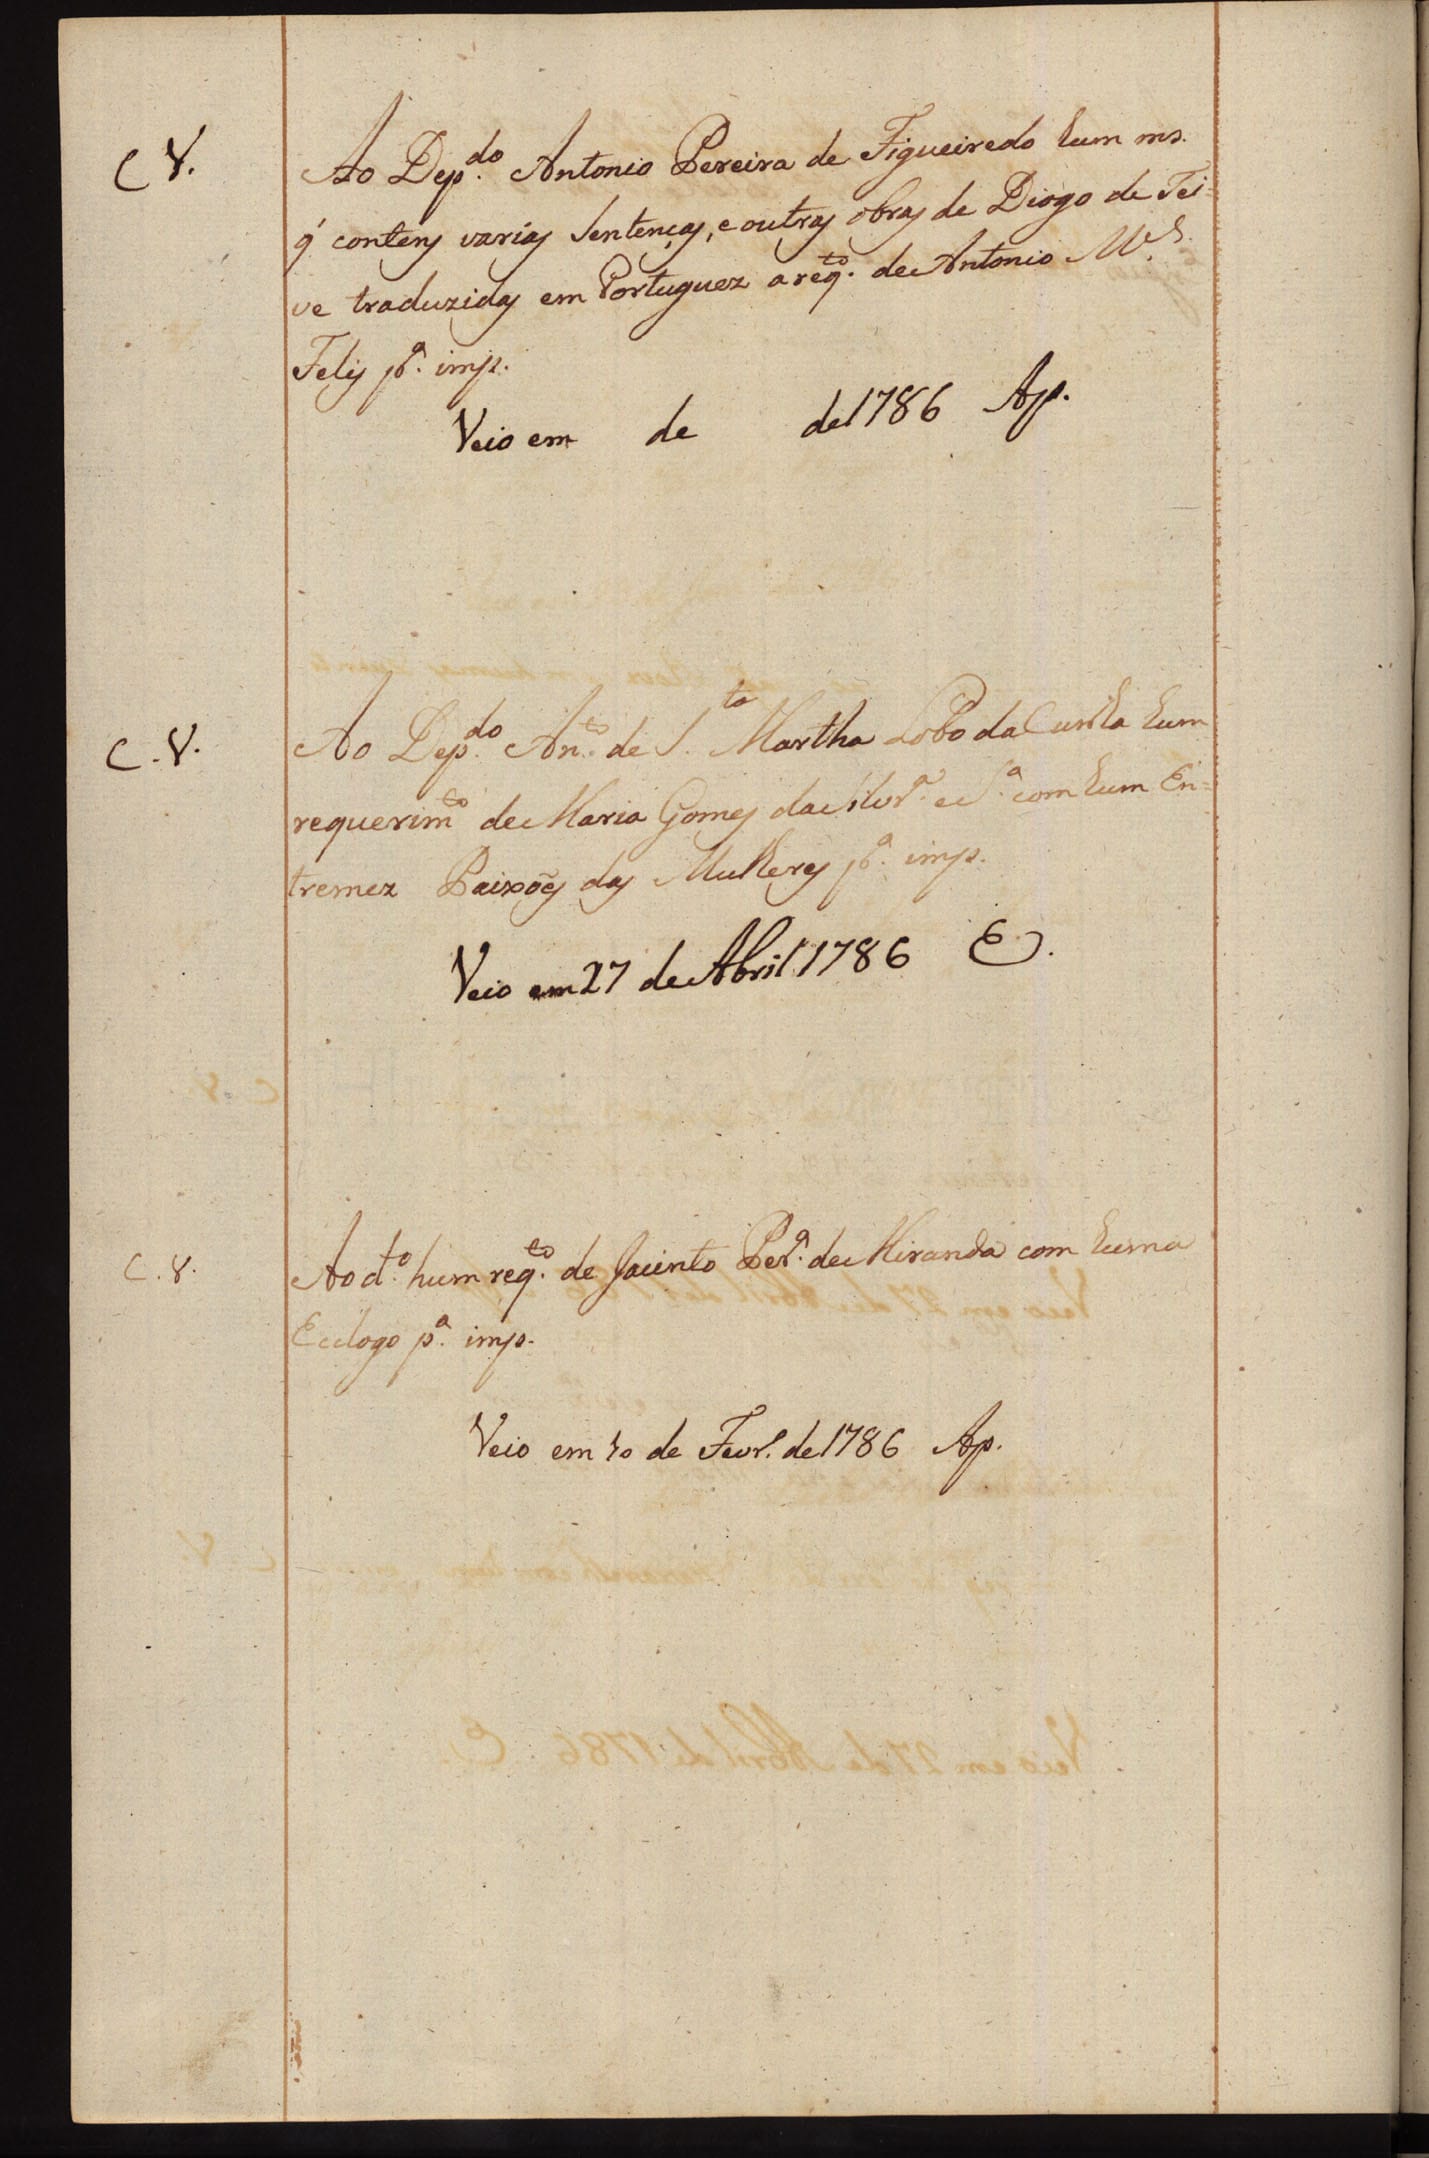 C V.
Ao Dep.do Antonio Pereira de Figueiredo hum ms.
q' contem varias Sentenças, e outras obras de Diogo de Tei=
ve traduzidas em Portuguez a req.to de Antonio
Felis p.a imp.
Veio em de de 1786 Ap.
C. V.
Ao Dep.do An.to de S.ta Martha Lobo da Cunha hum
requerim.to de Maria Gomes da Silvr.a e S.a com hum En=
tremez Paixoẽs das Mulheres p.a imp.
Veio em 27 de Abril 1786 E.
C. V.
Ao d.o hum req.to de Jacinto Per.a de Miranda com huma
Ecclogo p.a imp.
Veio em 10 de Fevr. de 1786 Ap.